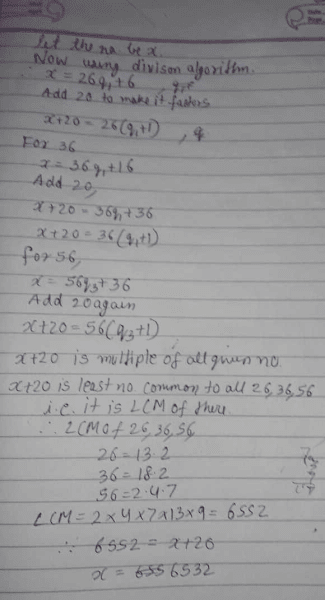 let the no. be x.
Now using divison algorithm.
∴ x = 26q₁+6
Add 20 to make it factors
x+20 = 26(q₁+1)
For 36
x = 36q₁+16
Add 20,
x+20 = 36q₁+36
x+20 = 36(q₁+1)
for 56,
x = 56q₃+36
Add 20 again
x+20 = 56(q₃+1)
x+20 is multiple of all given no.
x+20 is least no. common to all 26,36,56
i.e. it is LCM of these
∴ LCM of 26,36,56
26 = 13·2
36 = 18·2
56 = 2·4·7
LCM = 2×4×7×13×9 = 6552
∴ 6552 = x+20
x = 6532